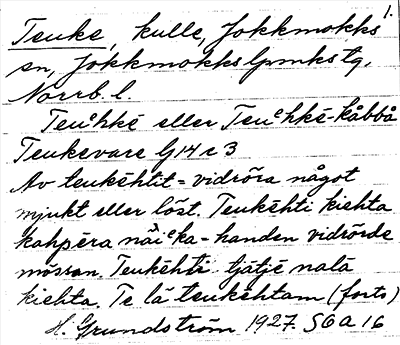 1.
Teuke, kulle, Jokkmokks
sn, Jokkmokks lpmkstg,
Norrb. l.
Teuᵒhkē eller Teuᵒhkē-kåbbå
Teukevare G14c3
Av teukēhtit = vidröra något
mjukt eller löst. Teukēhti kiehta
kahpēra näiᵉka = handen vidrörde
mössan. Teukēhti tjätjē nala
kiehta. Te lä teukēhtam (forts)
H. Grundström 1927. S6a16